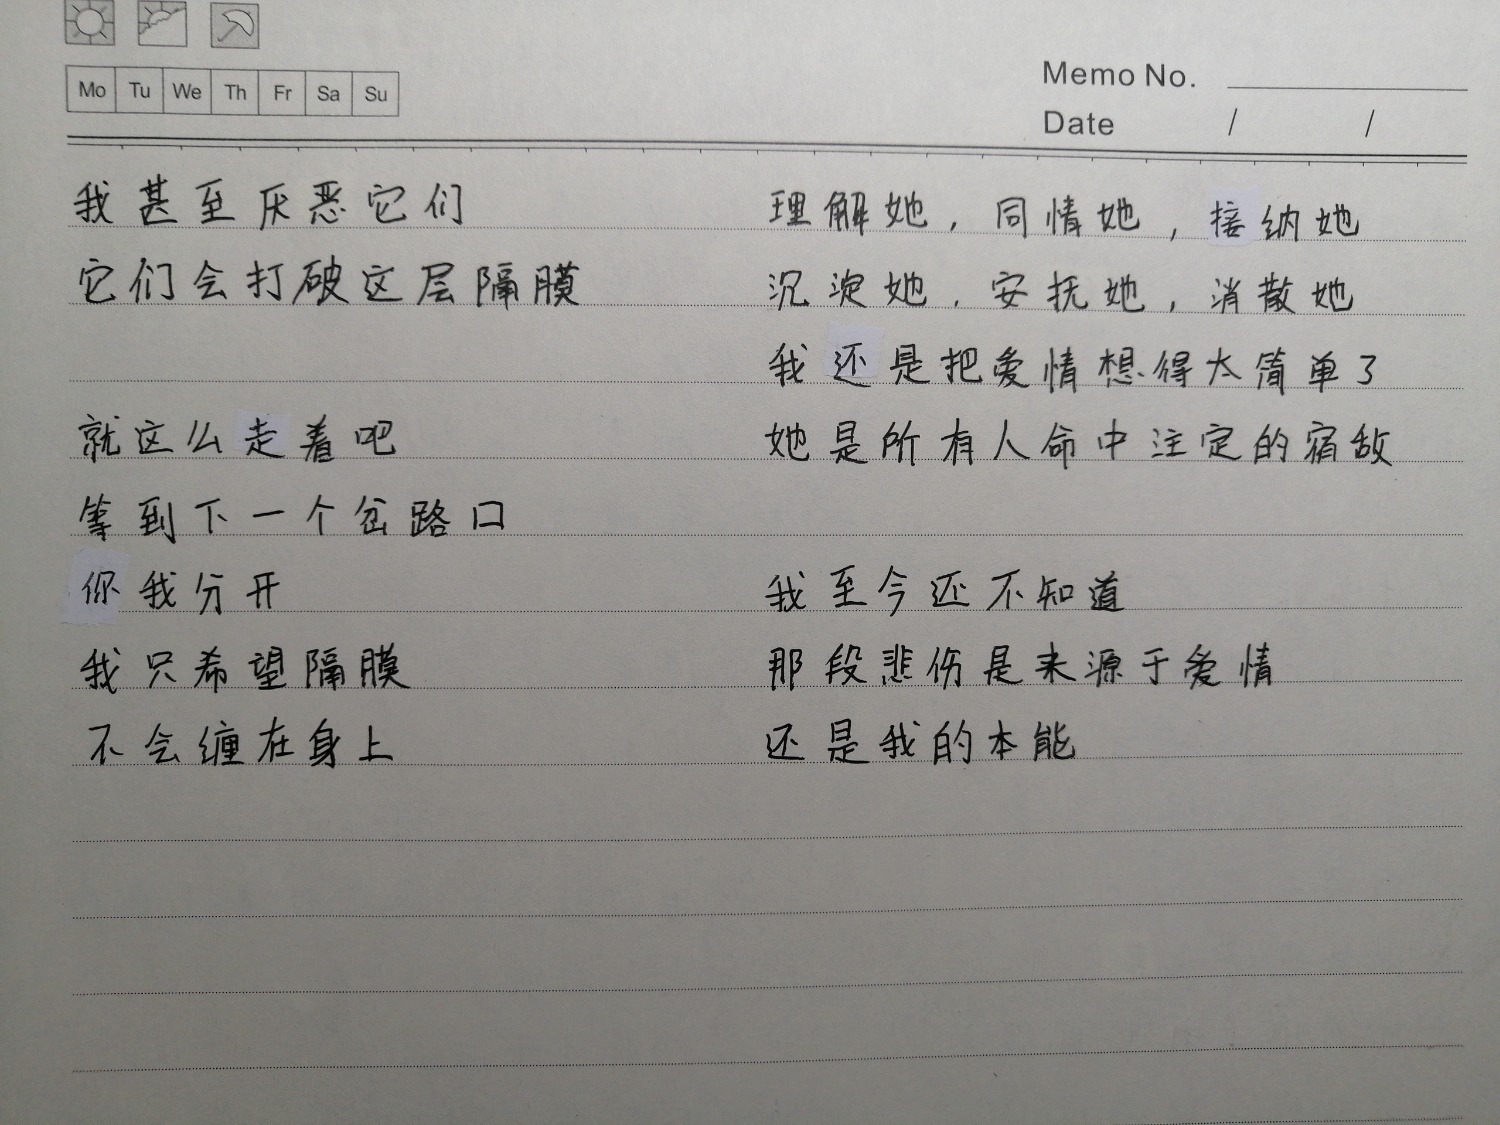 Mo Tu We Th Fr Sa Su
Memo No.
Date / /
我甚至厌恶它们
它们会打破这层隔膜
就这么走着吧
等到下一个岔路口
你我分开
我只希望隔膜
不会缠在身上
理解她，同情她，接纳她
沉淀她，安抚她，消散她
我还是把爱情想得太简单了
她是所有人命中注定的宿敌
我至今还不知道
那段悲伤是来源于爱情
还是我的本能